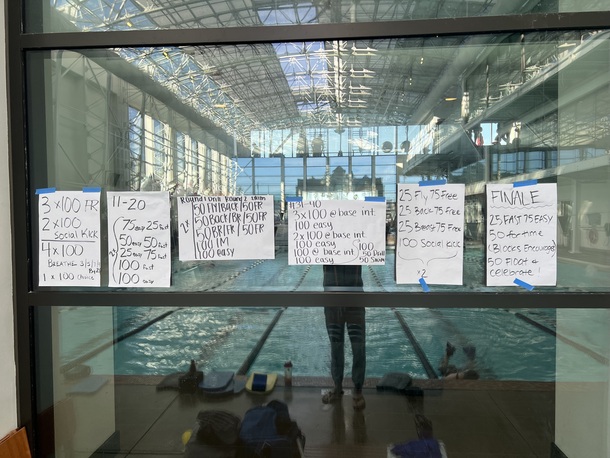 3 x 100 FR
2 x 100
Social Kick
4 x 100
BREATHE 3/5/7/
1 x 100 CHOICE
11-20
75 easy 25 fast
50 easy 50 fast
2x
25 easy 75 fast
100 fast
100 easy
Round 1
Round 2
50 FLY/BACK
50 FR
2x
50 BACK/BR
50 FR
50 BR/FR
50 FR
100 IM
100 easy
#31-40
3x100 @ base int.
100 easy
2x100 @ base int.
100 easy
100 @ base int
100 easy
100
50
50 Swim
25 Fly 75 Free
25 Back 75 Free
25 Breast 75 Free
100 Social Kick
x2
FINALE
25 FAST 75 EASY
50 for time
50 Float &
celebrate!